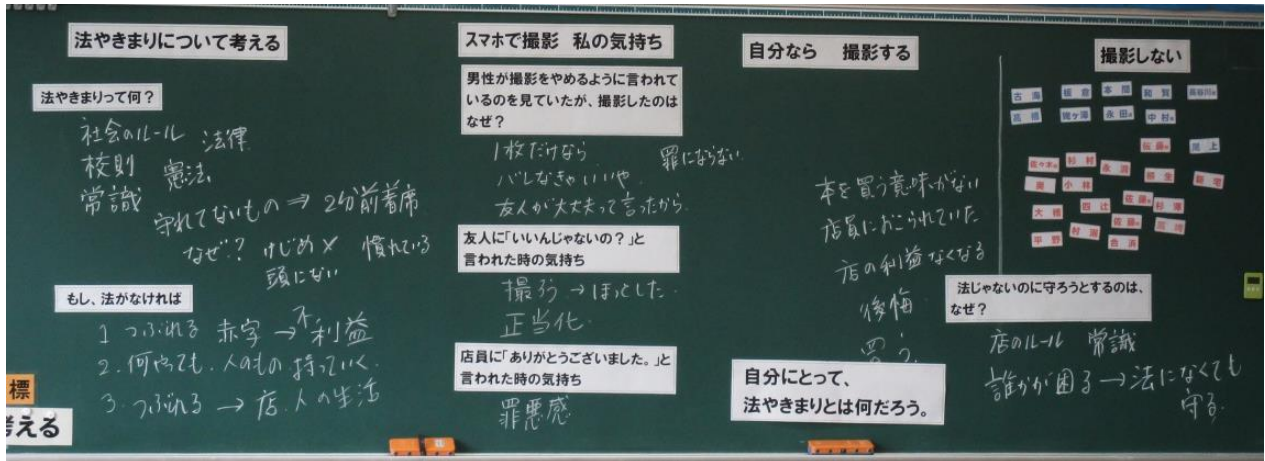 法やきまりについて考える
法やきまりって何？
社会のルール 法律
校則 憲法
常識
守れてないもの ⇒ 2分前着席
なぜ？ けじめ× 慣れている
頭にない
もし、法がなければ
1 つぶれる 赤字 → 不利益
2. 何やっても、人のもの 持っていく.
3. つぶれる → 店. 人の生活
標
考える
スマホで撮影 私の気持ち
男性が撮影をやめるように言われて
いるのを見ていたが、撮影したのは
なぜ？
1枚だけなら 罪にならない
バレなきゃいいや.
友人が大丈夫って言ったから.
友人に「いいんじゃないの？」と
言われた時の気持ち
撮ろう → ほっとした.
正当化.
店員に「ありがとうございました。」と
言われた時の気持ち
罪悪感
自分なら 撮影する
本を買う意味がない
店員におこられていた
店の利益なくなる
後悔
買う.
自分にとって、
法やきまりとは何だろう。
撮影しない
古海 板倉 本間 和賀 長谷川
高橋 梶ヶ澤 永田 中村
佐藤 尾上
佐々木 杉村 永瀬
小林
大橋 四辻 佐藤 杉澤
平野 村瀬 佐藤 高崎
法じゃないのに守ろうとするのは、
なぜ？
店のルール 常識
誰かが困る → 法になくても
守る.